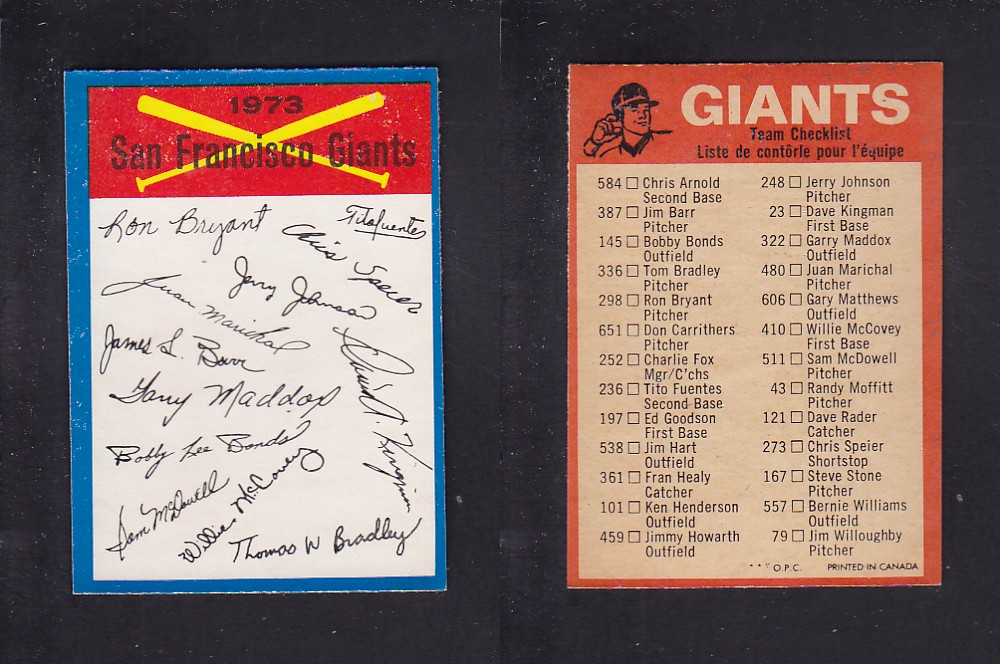 1973
San Francisco Giants
Ron Bryant
Tito Fuentes
Chris Speier
Jerry Johnson
Juan Marichal
James L. Barr
David A. Kingman
Garry Maddox
Bobby Lee Bonds
Sam McDowell
Willie McCovey
Thomas W Bradley
GIANTS
Team Checklist
Liste de contôrle pour l'équipe
584 Chris Arnold
Second Base
387 Jim Barr
Pitcher
145 Bobby Bonds
Outfield
336 Tom Bradley
Pitcher
298 Ron Bryant
Pitcher
651 Don Carrithers
Pitcher
252 Charlie Fox
Mgr/C'chs
236 Tito Fuentes
Second Base
197 Ed Goodson
First Base
538 Jim Hart
Outfield
361 Fran Healy
Catcher
101 Ken Henderson
Outfield
459 Jimmy Howarth
Outfield
248 Jerry Johnson
Pitcher
23 Dave Kingman
First Base
322 Garry Maddox
Outfield
480 Juan Marichal
Pitcher
606 Gary Matthews
Outfield
410 Willie McCovey
First Base
511 Sam McDowell
Pitcher
43 Randy Moffitt
Pitcher
121 Dave Rader
Catcher
273 Chris Speier
Shortstop
167 Steve Stone
Pitcher
557 Bernie Williams
Outfield
79 Jim Willoughby
Pitcher
***O.P.C. PRINTED IN CANADA